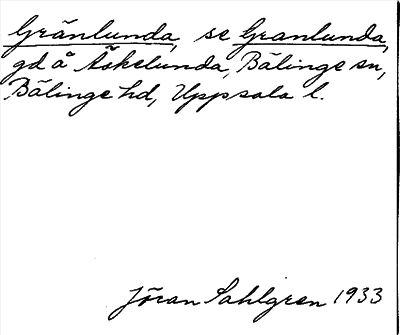 Gränlunda, se Granlunda,
gd å Äskelunda, Bälinge sn,
Bälinge hd, Uppsala l.
Jöran Sahlgren 1933